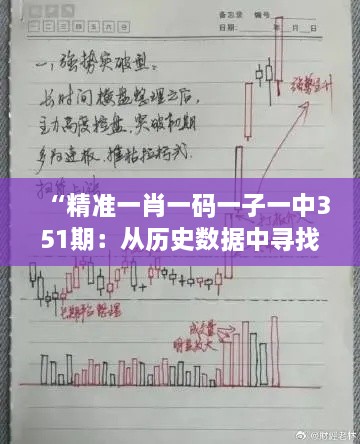 备忘录 编号
一 二 三 四 五 六 日
日期: 年 月 日
一、强势突破型:
长时间横盘整理之后,
主力高度控盘,突破初期
多为连板、推粘拉抬式
强势上升
“精准一肖一码一子一中3
51期：从历史数据中寻找
长期平台整理
成交量
明显放大
@财经老林